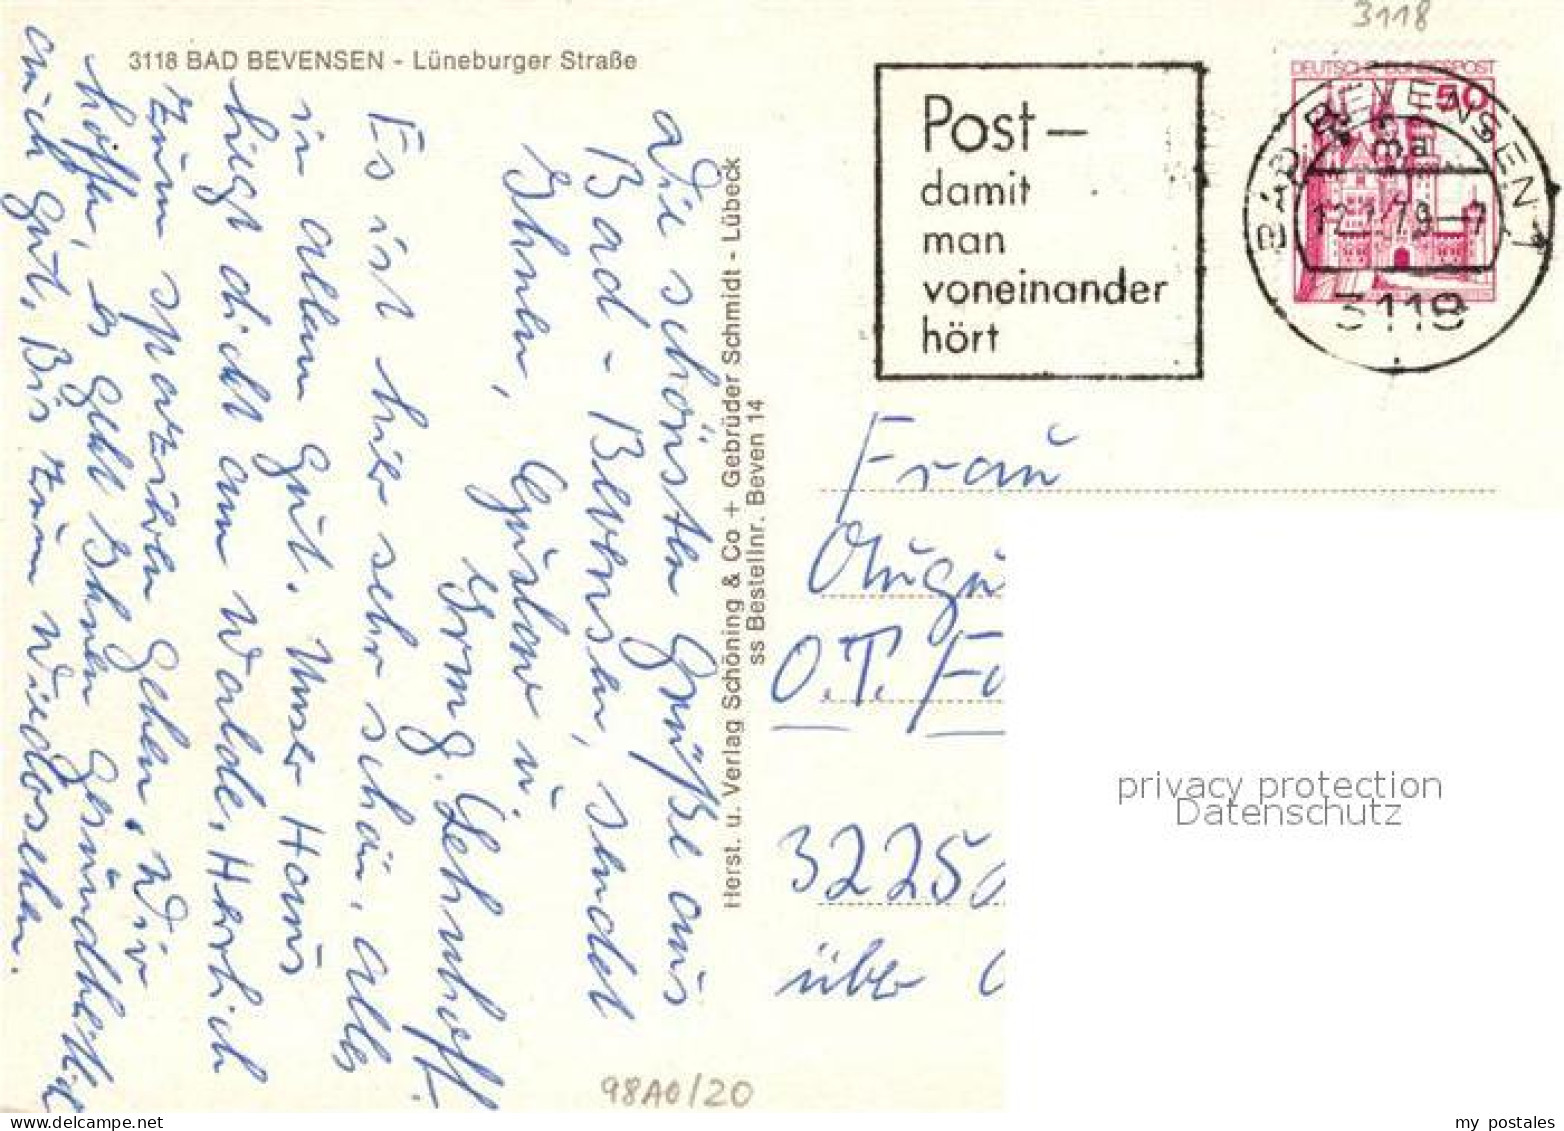 3118
3118 BAD BEVENSEN - Lüneburger Straße
Post –
damit
man
voneinander
hört
DEUTSCHE BUNDESPOST
50
BAD BEVENSEN 1
ma
12.1.79-7
3118
Die schönsten Grüße aus
Bad-Bevensen, sendet
Ihnen, Gustav u.
Irmg. Lehnhoff.
Es ist hier sehr schön, alles
in allem gut. Unser Haus
liegt dicht am Walde, Herrlich
zum spazieren gehen. Wir
hoffen, es geht Ihnen gesundheitlich
auch gut, Bis zum Wiedersehen.
Herst. u. Verlag Schöning & Co + Gebrüder Schmidt - Lübeck
ss Bestellnr. Beven 14
Frau
Augu
O.T. Fo
3225
über
privacy protection
Datenschutz
98A0/20
my postales